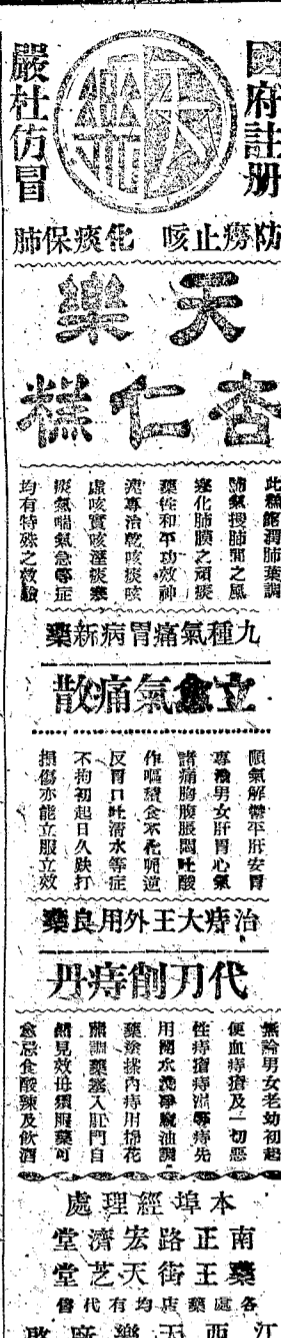 國府註册
嚴杜仿冒
天樂
防癆止咳 化痰保肺
天樂
杏仁糕
此糕能潤肺葉調
肺氣搜肺間之風
寒化肺膜之頑痰
藥性和平功效神
速專治乾咳痰咳
虛咳實咳溼痰寒
痰氣喘氣急等症
均有特殊之效驗
九種氣痛胃病新藥
立愈氣痛散
順氣解鬱平肝安胃
專治男女肝胃心氣
諸痛胸腹脹悶吐酸
作嘔積食不化呃逆
反胃口吐清水等症
不拘初起日久跌打
損傷亦能立服立效
治痔大王外用良藥
代刀創痔丹
無論男女老幼初起
便血痔瘡及一切惡
性痔瘡痔漏等痔先
用開水洗淨蔴油調
藥塗抹內痔用棉花
蘸調藥塞入肛門自
顯見效毋須服藥可
愈忌食酸辣及飲酒
本埠經理處
南正路宏濟堂
藥王街天芝堂
各處藥店均有代售
江西天樂廠啟